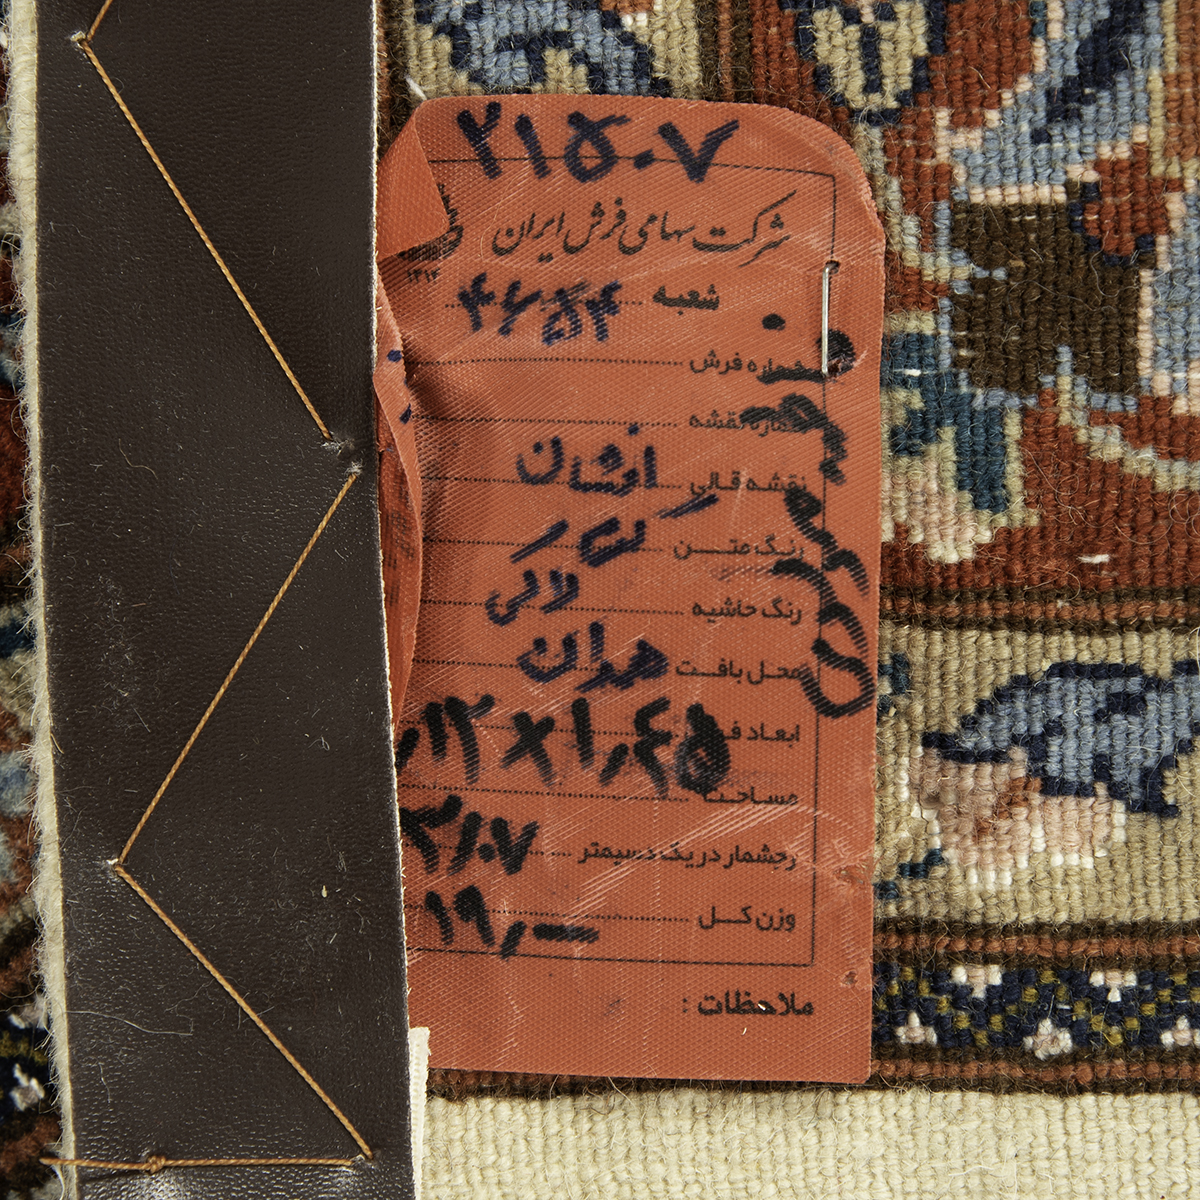 ۲۱۵۰۷
شرکت سهامی فرش ایران
۱۳۱۴
شعبه ۴۶۵۴
شماره فرش
شماره نقشه
نقشه قالی افشان
رنگ متن
رنگ حاشیه لاکی
محل بافت همدان
ابعاد ۱۲ × ۱٫۴۵
مساحت
رجشمار در یک دسیمتر ۳٫۰۷
وزن کل ۱۹٫—
ملاحظات :